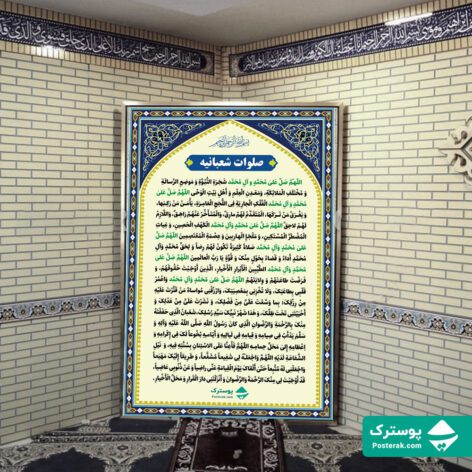 بسم الله الرحمن الرحیم
صلوات شعبانیه
اللَّهُمَّ صَلِّ عَلَى مُحَمَّدٍ وَ آلِ مُحَمَّدٍ شَجَرَةِ النُّبُوَّةِ وَ مَوْضِعِ الرِّسَالَةِ
وَ مُخْتَلَفِ الْمَلائِكَةِ، وَ مَعْدِنِ الْعِلْمِ وَ أَهْلِ بَيْتِ الْوَحْيِ اللَّهُمَّ صَلِّ عَلَى
مُحَمَّدٍ وَ آلِ مُحَمَّدٍ الْفُلْكِ الْجَارِيَةِ فِي اللُّجَجِ الْغَامِرَةِ، يَأْمَنُ مَنْ رَكِبَهَا،
وَ يَغْرَقُ مَنْ تَرَكَهَا، الْمُتَقَدِّمُ لَهُمْ مَارِقٌ، وَالْمُتَأَخِّرُ عَنْهُمْ زَاهِقٌ، وَاللَّازِمُ
لَهُمْ لاحِقٌ اللَّهُمَّ صَلِّ عَلَى مُحَمَّدٍ وَ آلِ مُحَمَّدٍ، الْكَهْفِ الْحَصِينِ، وَ غِيَاثِ
الْمُضْطَرِّ الْمُسْتَكِينِ، وَ مَلْجَإِ الْهَارِبِينَ وَ عِصْمَةِ الْمُعْتَصِمِينَ اللَّهُمَّ صَلِّ
عَلَى مُحَمَّدٍ وَ آلِ مُحَمَّدٍ صَلاةً كَثِيرَةً تَكُونُ لَهُمْ رِضاً وَ لِحَقِّ مُحَمَّدٍ وَ آلِ
مُحَمَّدٍ أَدَاءً وَ قَضَاءً بِحَوْلٍ مِنْكَ وَ قُوَّةٍ يَا رَبَّ الْعَالَمِينَ اللَّهُمَّ صَلِّ عَلَى
مُحَمَّدٍ وَ آلِ مُحَمَّدٍ الطَّيِّبِينَ الْأَبْرَارِ الْأَخْيَارِ، الَّذِينَ أَوْجَبْتَ حُقُوقَهُمْ، وَ
فَرَضْتَ طَاعَتَهُمْ وَ وِلايَتَهُمْ اللَّهُمَّ صَلِّ عَلَى مُحَمَّدٍ وَ آلِ مُحَمَّدٍ وَاعْمُرْ
قَلْبِي بِطَاعَتِكَ، وَلا تُخْزِنِي بِمَعْصِيَتِكَ، وَارْزُقْنِي مُوَاسَاةَ مَنْ قَتَّرْتَ عَلَيْهِ
مِنْ رِزْقِكَ، بِمَا وَسَّعْتَ عَلَيَّ مِنْ فَضْلِكَ، وَ نَشَرْتَ عَلَيَّ مِنْ عَدْلِكَ، وَ
أَحْيَيْتَنِي تَحْتَ ظِلِّكَ، وَ هَذَا شَهْرُ نَبِيِّكَ سَيِّدِ رُسُلِكَ، شَعْبَانُ الَّذِي حَفَفْتَهُ
مِنْكَ بِالرَّحْمَةِ وَالرِّضْوَانِ الَّذِي كَانَ رَسُولُ اللَّهِ صَلَّى اللَّهُ عَلَيْهِ وَآلِهِ وَ
سَلَّمَ يَدْأَبُ فِي صِيَامِهِ وَ قِيَامِهِ فِي لَيَالِيهِ وَ أَيَّامِهِ بُخُوعاً لَكَ فِي إِكْرَامِهِ وَ
إِعْظَامِهِ إِلَى مَحَلِّ حِمَامِهِ اللَّهُمَّ فَأَعِنَّا عَلَى الاسْتِنَانِ بِسُنَّتِهِ فِيهِ، وَ نَيْلِ
الشَّفَاعَةِ لَدَيْهِ اللَّهُمَّ وَاجْعَلْهُ لِي شَفِيعاً مُشَفَّعاً، وَ طَرِيقاً إِلَيْكَ مَهْيَعاً
وَاجْعَلْنِي لَهُ مُتَّبِعاً حَتَّى أَلْقَاكَ يَوْمَ الْقِيَامَةِ عَنِّي رَاضِياً وَ عَنْ ذُنُوبِي غَاضِياً،
قَدْ أَوْجَبْتَ لِي مِنْكَ الرَّحْمَةَ وَالرِّضْوَانَ وَ أَنْزَلْتَنِي دَارَ الْقَرَارِ وَ مَحَلَّ الْأَخْيَارِ.
پوسترک
Posterak.com
پوسترک
Posterak.com